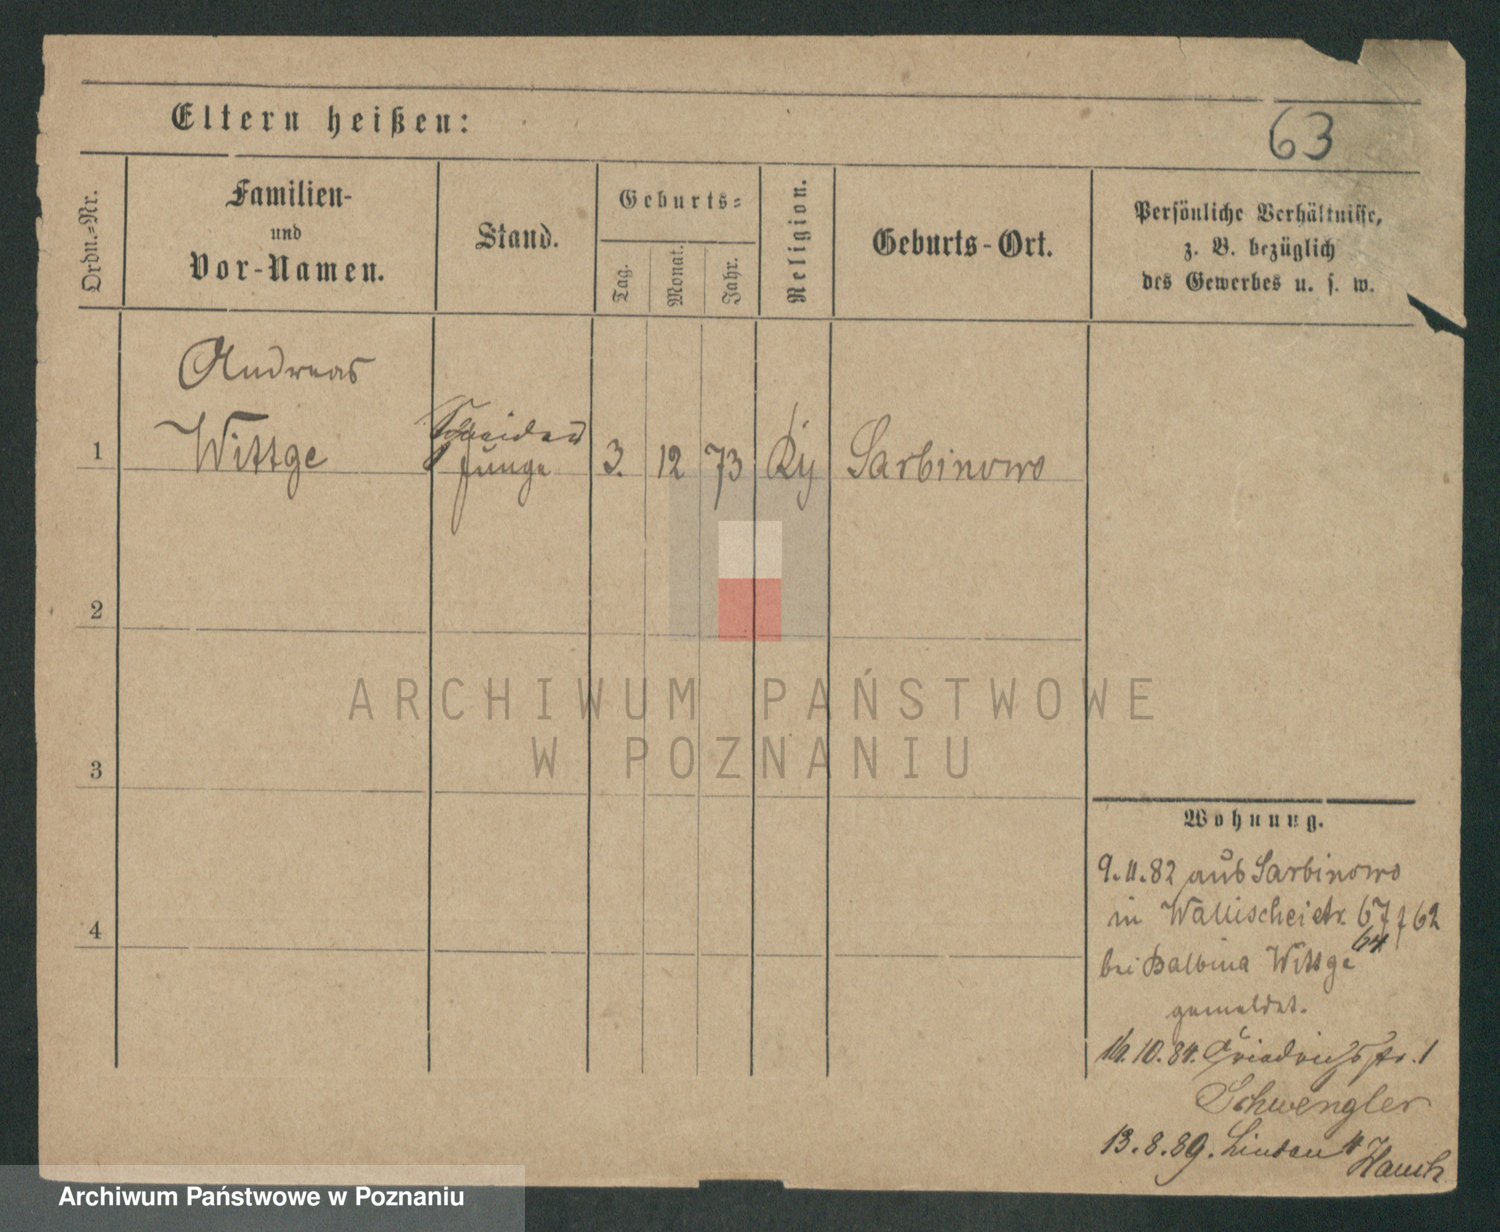 Eltern heißen:
63
Ordn.-Nr.
Familien-
und
Vor-Namen.
Stand.
Geburts-
Tag.
Monat.
Jahr.
Religion.
Geburts-Ort.
Persönliche Verhältnisse,
z. B. bezüglich
des Gewerbes u. s. w.
Andreas
1 Wittge Junge 3. 12 73 Sarbinowo
2
3
4
ARCHIWUM PAŃSTWOWE
W POZNANIU
Wohnung.
9.11.82 aus Sarbinowo
in Wallischeistr. 67 / 62
64
bei Balbina Wittge
gemeldet.
10.84. Friedrichstr. 1
Schwengler
13.8.89. Linden 4
Archiwum Państwowe w Poznaniu